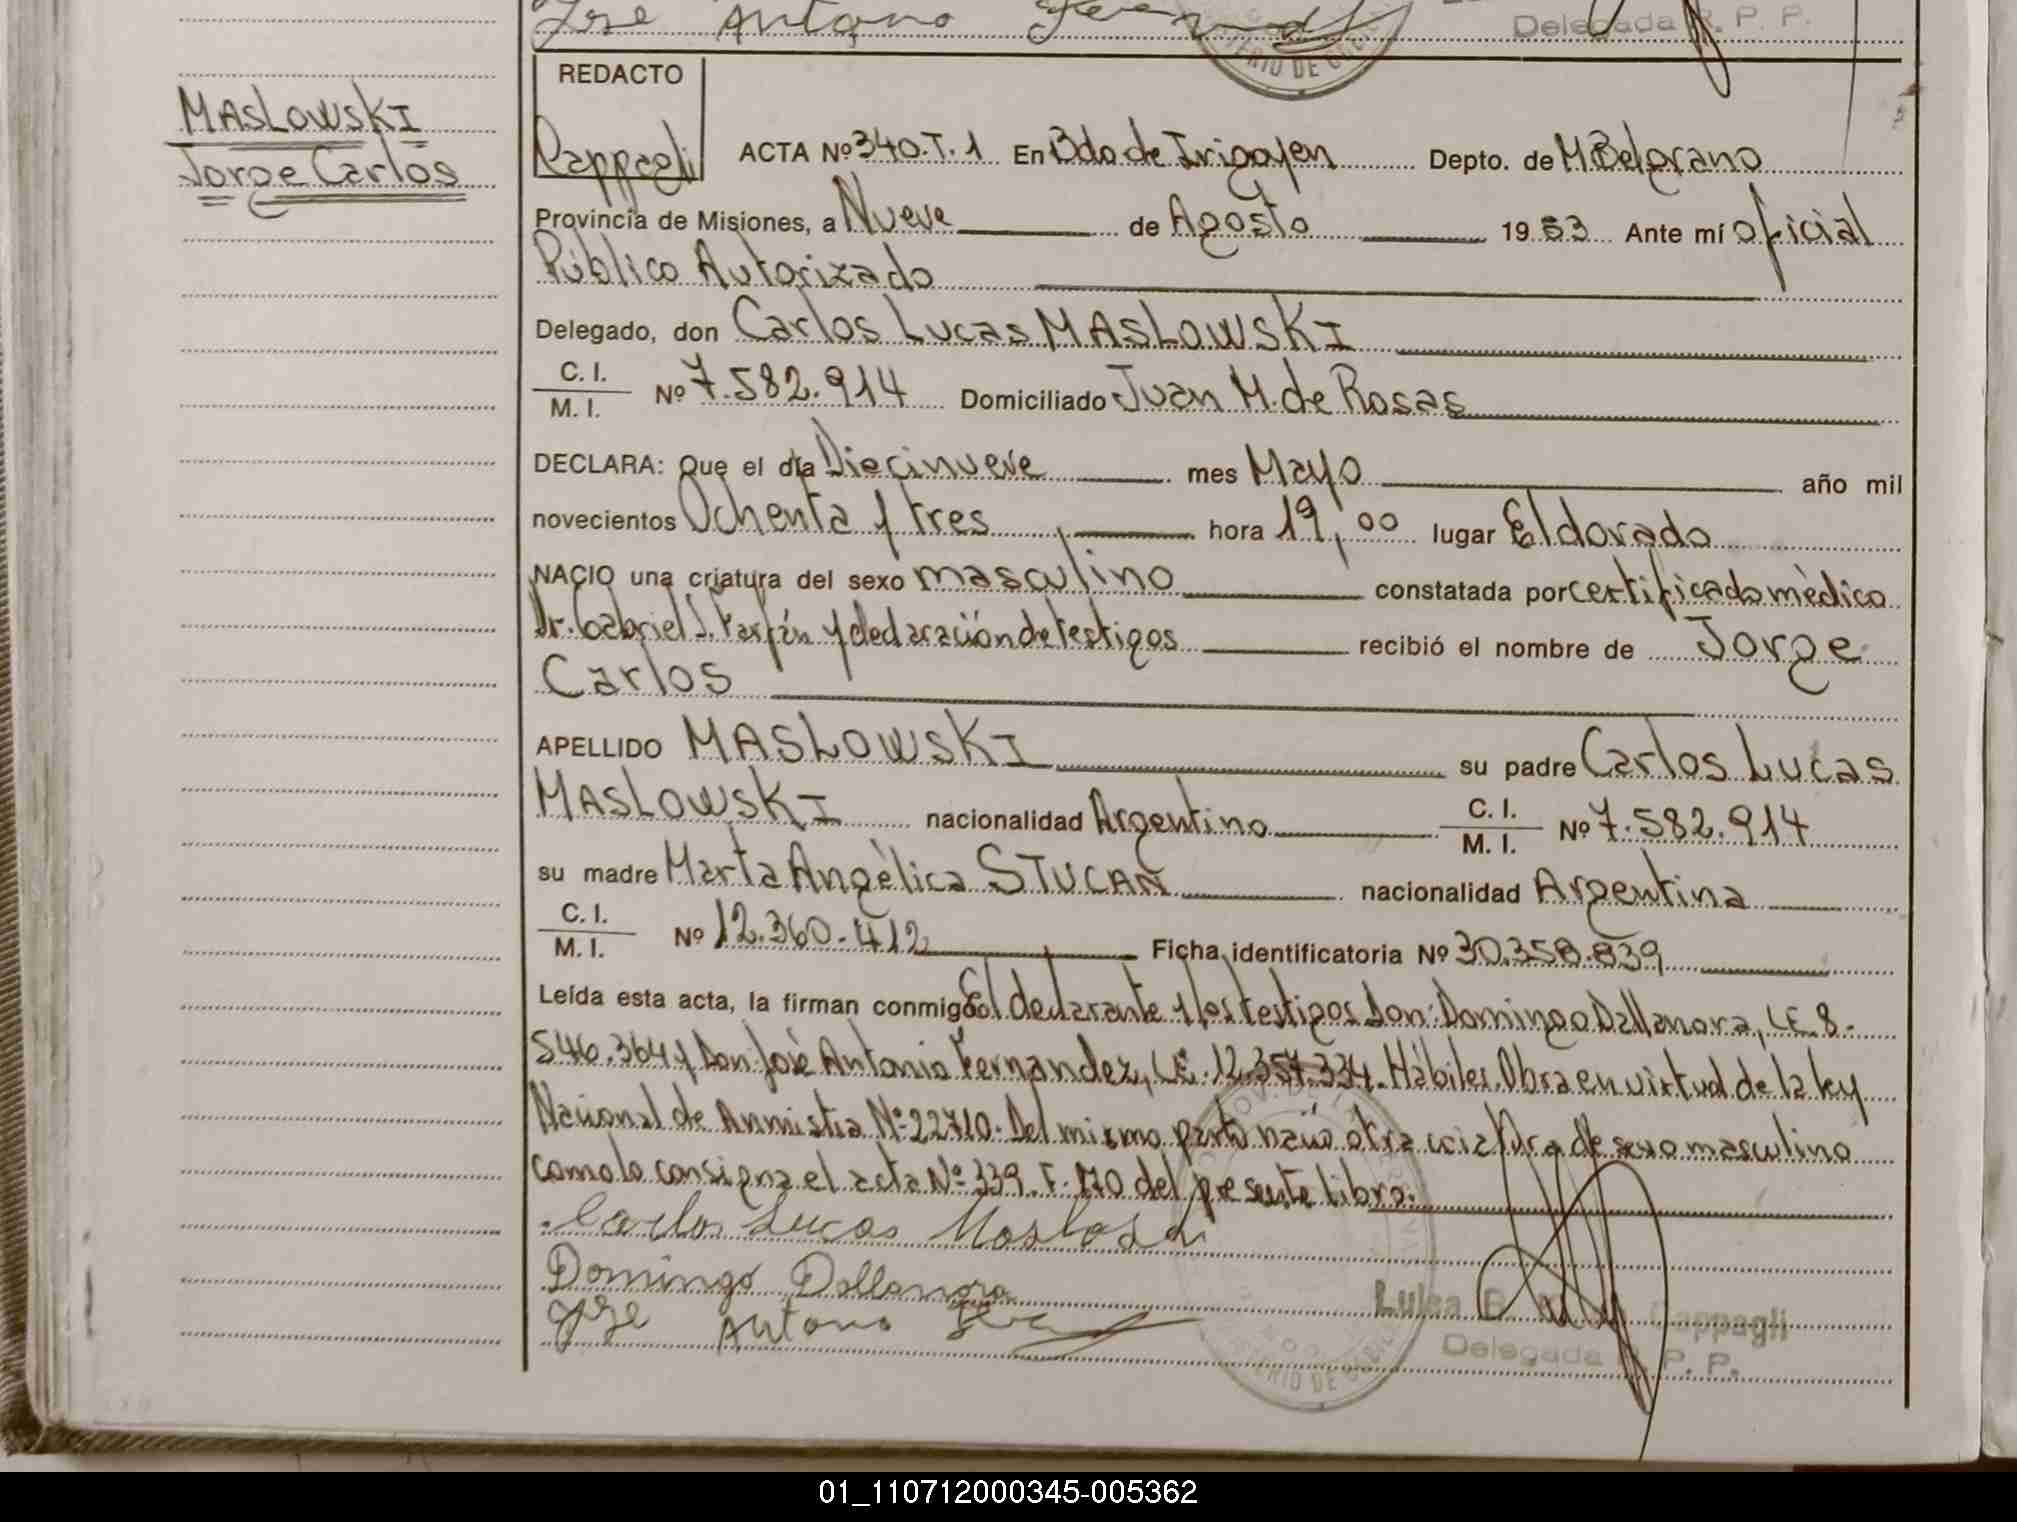 Jose Antonio
Delegada R. P. P.
MINISTERIO DE
REDACTO
MASLOWSKI
Jorge Carlos
Cappagli ACTA Nº 340.T.1 En Bdo de Irigoyen Depto. de M Belgrano
Provincia de Misiones, a Nueve de Agosto 1983 Ante mí oficial
Público Autorizado
Delegado, don Carlos Lucas MASLOWSKI
C. I.
M. I. Nº 7.582.914 Domiciliado Juan M. de Rosas
DECLARA: Que el día Diecinueve mes Mayo año mil
novecientos Ochenta y tres hora 19,00 lugar Eldorado
NACIO una criatura del sexo masculino constatada por certificado mèdico
Dr. Gabriel J. Farfán y declaración de testigos recibió el nombre de Jorge
Carlos
APELLIDO MASLOWSKI su padre Carlos Lucas
MASLOWSKI nacionalidad Argentino C. I.
M. I. Nº 7.582.914
su madre Marta Angèlica STUCAN nacionalidad Argentina
C. I.
M. I. Nº 12.360.412 Ficha identificatoria Nº 30.358.839
Leída esta acta, la firman conmigo El declarante y los testigos Don: Domingo Dallanora, L.E. 8.
546.364 y Don: José Antonio Fernandez, L.E. 12.357.334. Hábiles. Obra en virtud de la ley
Nacional de Anmistia Nº 22710. Del mismo parto nació otra criatura de sexo masculino
como lo consigna el acta Nº 339. F. 170 del presente libro.
Carlos Lucas Maslowski
Domingo Dallanora
Jose Antonio
Luisa B. Cappagli
Delegada R. P. P.
01_110712000345-005362